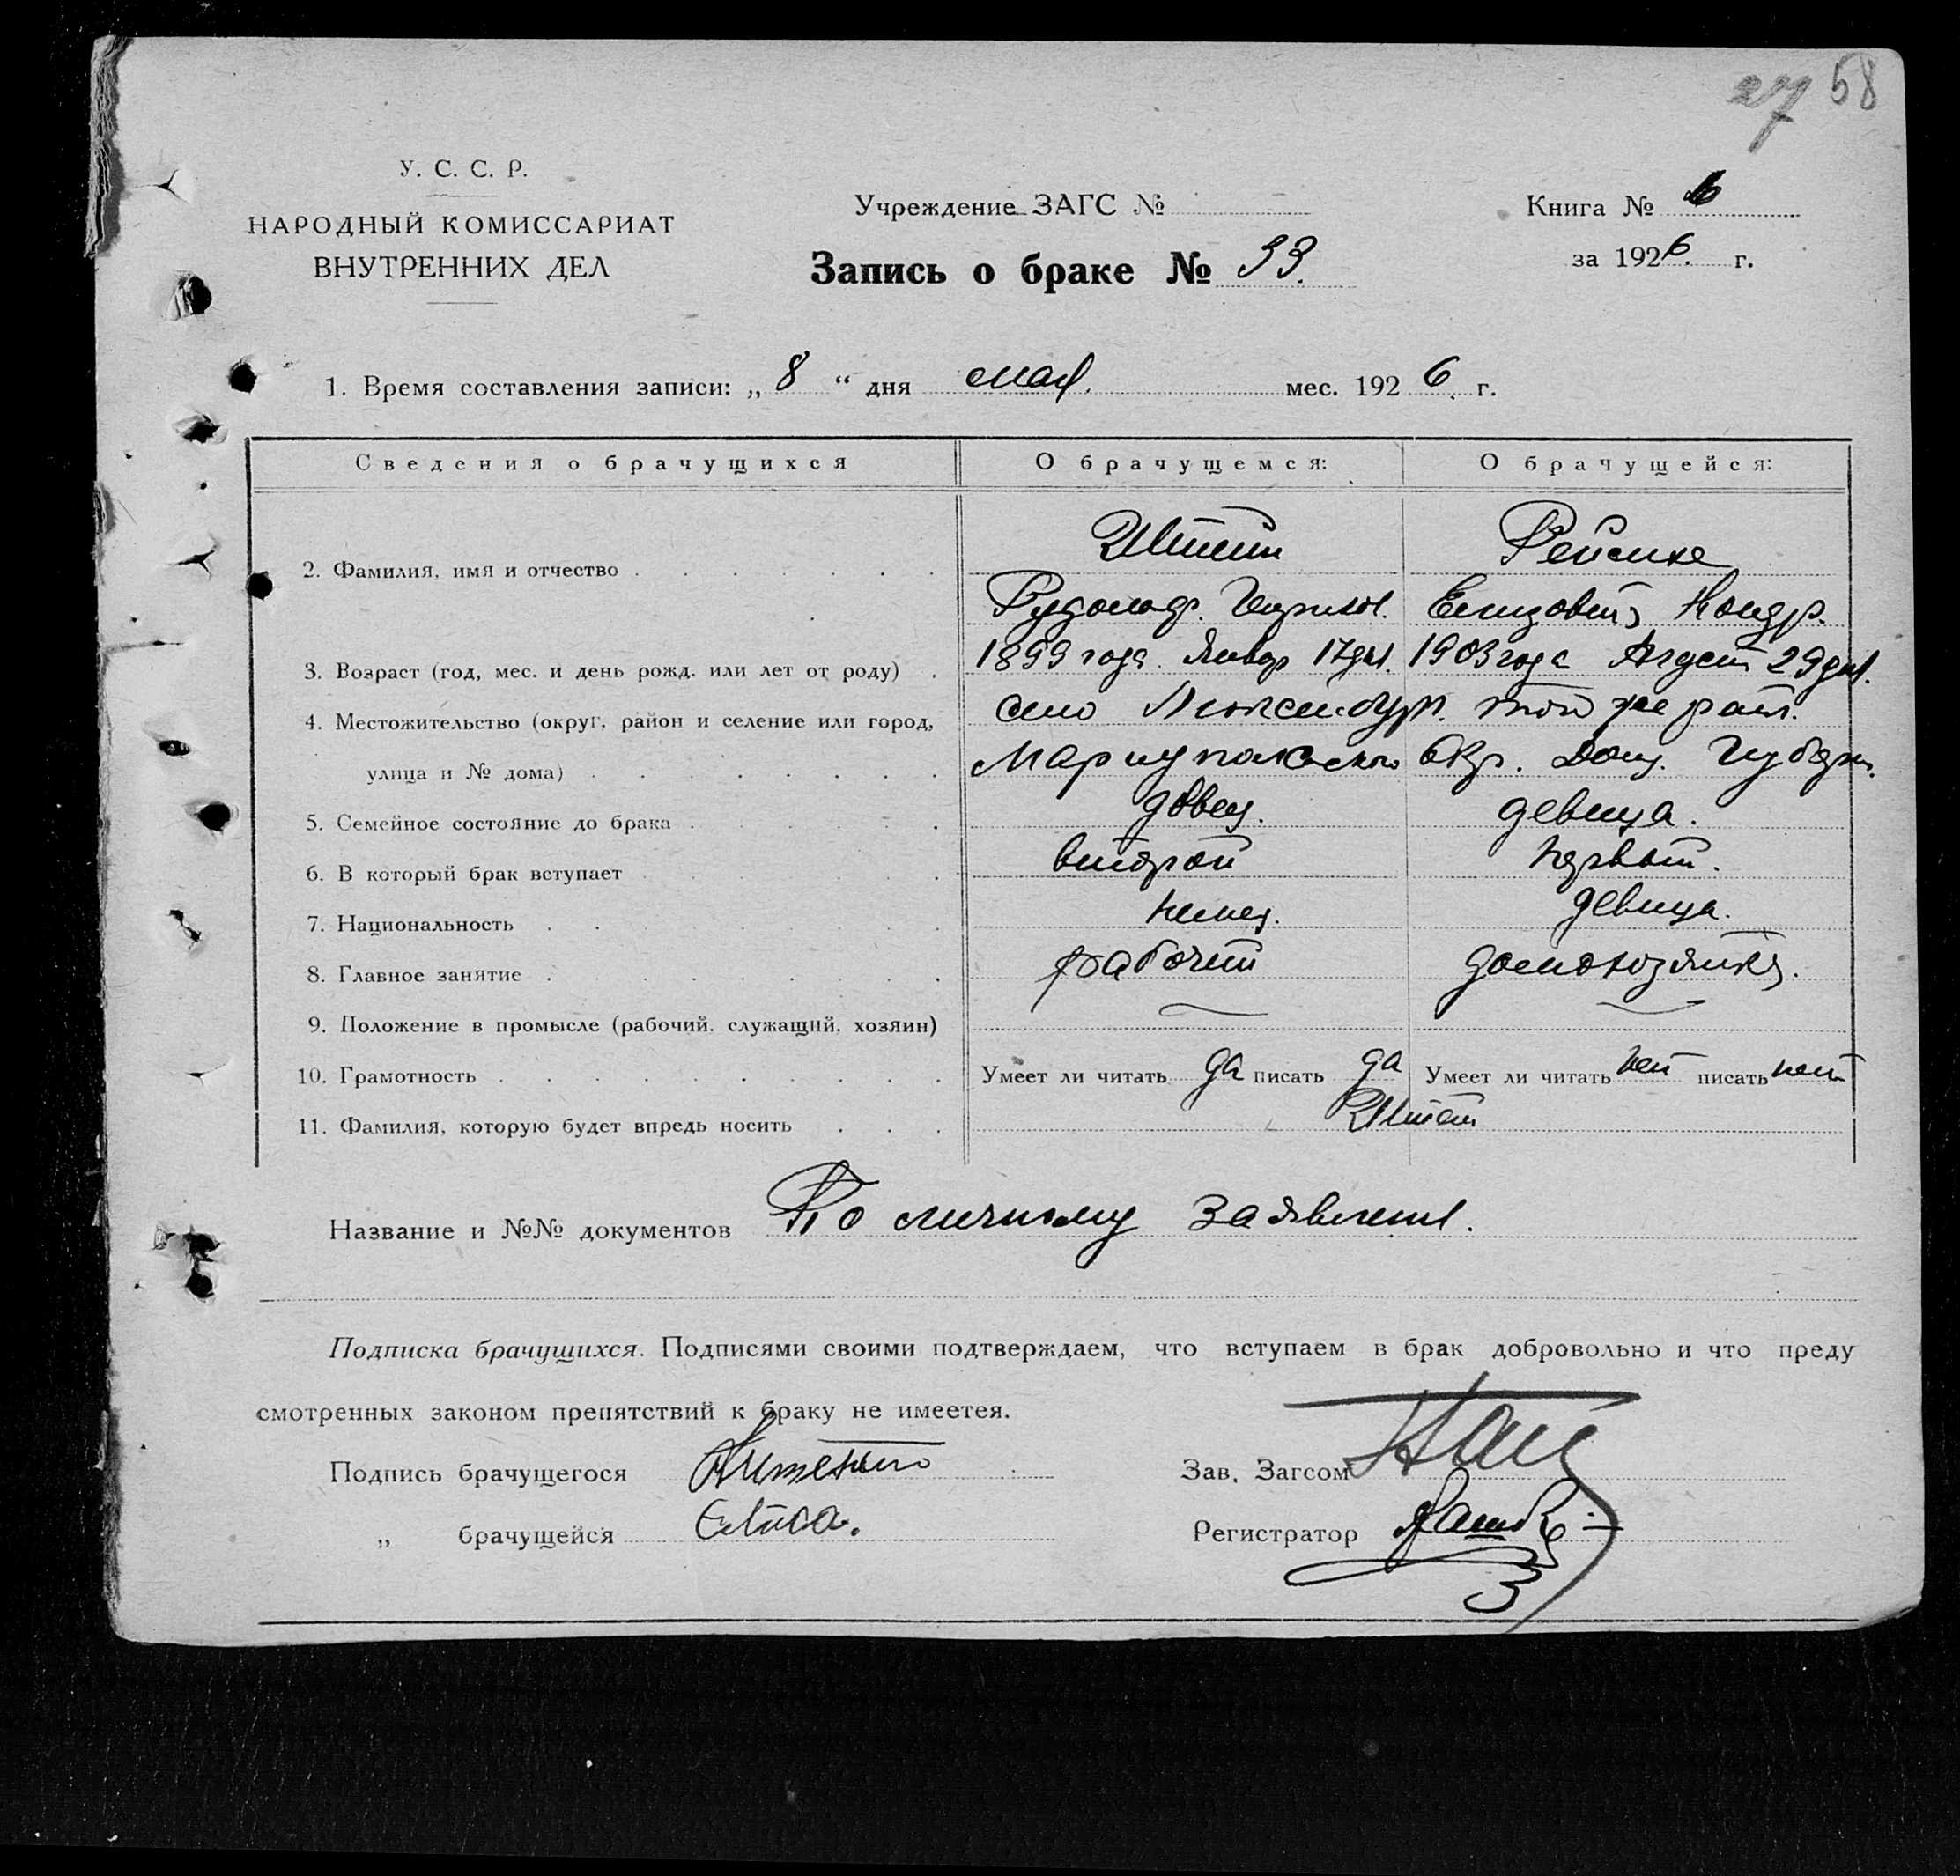 27 58
У. С. С. Р.
НАРОДНЫЙ КОМИССАРИАТ
ВНУТРЕННИХ ДЕЛ
Учреждение ЗАГС №
Запись о браке № 33.
Книга № 6
за 1926. г.
1. Время составления записи: „ 8 “ дня мая. мес. 1926. г.
Сведения о брачущихся О брачущемся: О брачущейся:
2. Фамилия, имя и отчество Штейн Рейсихе
Рудольф. Елизовета Кондр.
3. Возраст (год, мес. и день рожд. или лет от роду) 1899 года Январ 17 дн. 1903 года Август 29 дн.
4. Местожительство (округ, район и селение или город, село Люксембур. той же рай.
улица и № дома) Мариупольского Окр. Дон. Губерн.
5. Семейное состояние до брака вдовец. девица.
6. В который брак вступает второй первый.
7. Национальность немец. девица.
8. Главное занятие рабочий домохозяйка.
9. Положение в промысле (рабочий, служащий, хозяин)
10. Грамотность Умеет ли читать да писать да Умеет ли читать нет писать нет
11. Фамилия, которую будет впредь носить Штейн
Название и №№ документов По личному заявлению.
Подписка брачущихся. Подписями своими подтверждаем, что вступаем в брак добровольно и что преду
смотренных законом препятствий к браку не имеетея.
Подпись брачущегося
Зав. Загсом
„ брачущейся
Регистратор